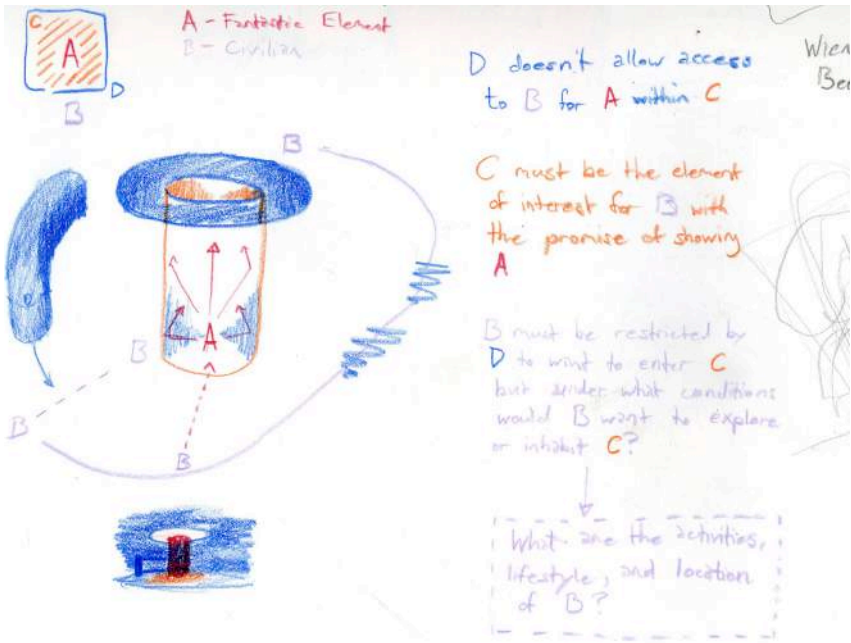 A - Fantastic Element
B - Civilian
C
A
D
B
D doesn't allow access
to B for A within C
C must be the element
of interest for B with
the promise of showing
A
B must be restricted by
D to want to enter C
but under what conditions
would B want to explore
or inhabit C?
What are the activities,
lifestyle, and location
of B?
B
A
B
B
B